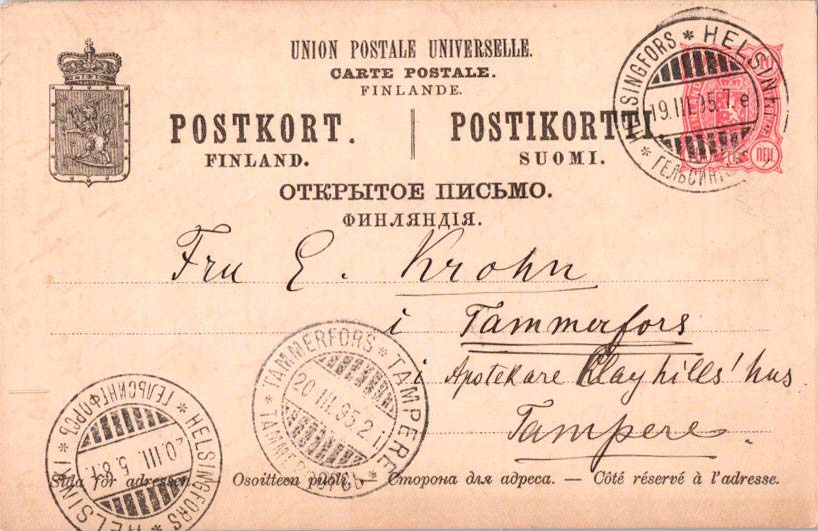 UNION POSTALE UNIVERSELLE.
CARTE POSTALE.
FINLANDE.
POSTKORT. POSTIKORTTI
FINLAND. SUOMI.
ОТКРЫТОЕ ПИСЬМО.
ФИНЛЯНДІЯ.
HELSINGFORS * HELSIN
19.III.95.7.e
Fru E. Krohn
i Tammerfors
i Apotekare Clayhills' hus
Tampere
TAMMERFORS * TAMPERE *
20.III.95.2.i
HELSINGFORS * HELSIN KI * ГЕЛЬСИНГФОРСЪ *
Sida för adressen. — Osoitteen puoli. — Сторона для адреса. — Côté réservé à l'adresse.